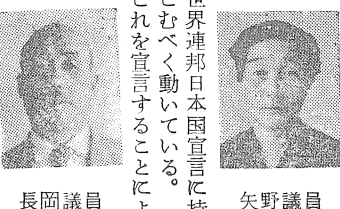 世界連邦日本国宣言に
こむべく動いている。
れを宣言することによ
矢野議員
長岡議員